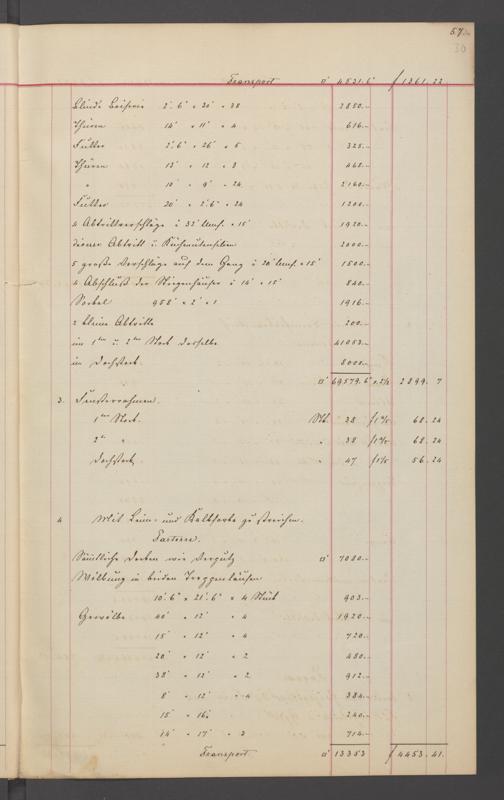 57.
30
Transport □' 4521.6" f 1361.22
Blinde Brüstrie 2'.6" × 30' × 38 2850.—
Thüren 14' × 11' × 4 616.—
Futter 2'.6" × 26' × 5 325.—
Thüren 13' × 12 × 3 468.—
" 10' × 9' × 24 2160.—
Futter 20' × 2'.6" × 24 1200.—
4 Abtrittverschläge à 32' Umf. × 15' 1920.—
Abtritt u. Küchenutensilien 2000.—
5 große Verschläge auf dem Gang à 20' Umf. × 15' 1500.—
4 Abschluß der Stiegenhäuser à 14' × 15' 840.—
Sockel 958' × 2' × 1 1916.—
2 kleine Abtritte 200.—
im 1ten u. 2ten Stock dasselbe 41053.—
im Dachstock 8000.—
□' 69579.6" 2899. 7
3. Fensterrahmen.
1ter Stock. Stk. 38 68.24
2ter " " 38 68.24
Dachstock " 47 56.24
4 Mit Leim- und Kalkfarbe zu streichen.
Parterre.
Sämtliche Decken wie Verputz □' 7080.—
Wölbung in beiden Treppenhäusern
10'.6" × 21'.6" × 4 Stück 903.—
Gewölbe 40' × 12' × 4 1920.—
15' × 12' × 4 720.—
20' × 12' × 2 480.—
38' × 12' × 2 912.—
8' × 12' × 4 384.—
15' × 16' 240.—
14' × 17' × 3 714.—
Transport □' 13353 f 4453.41.